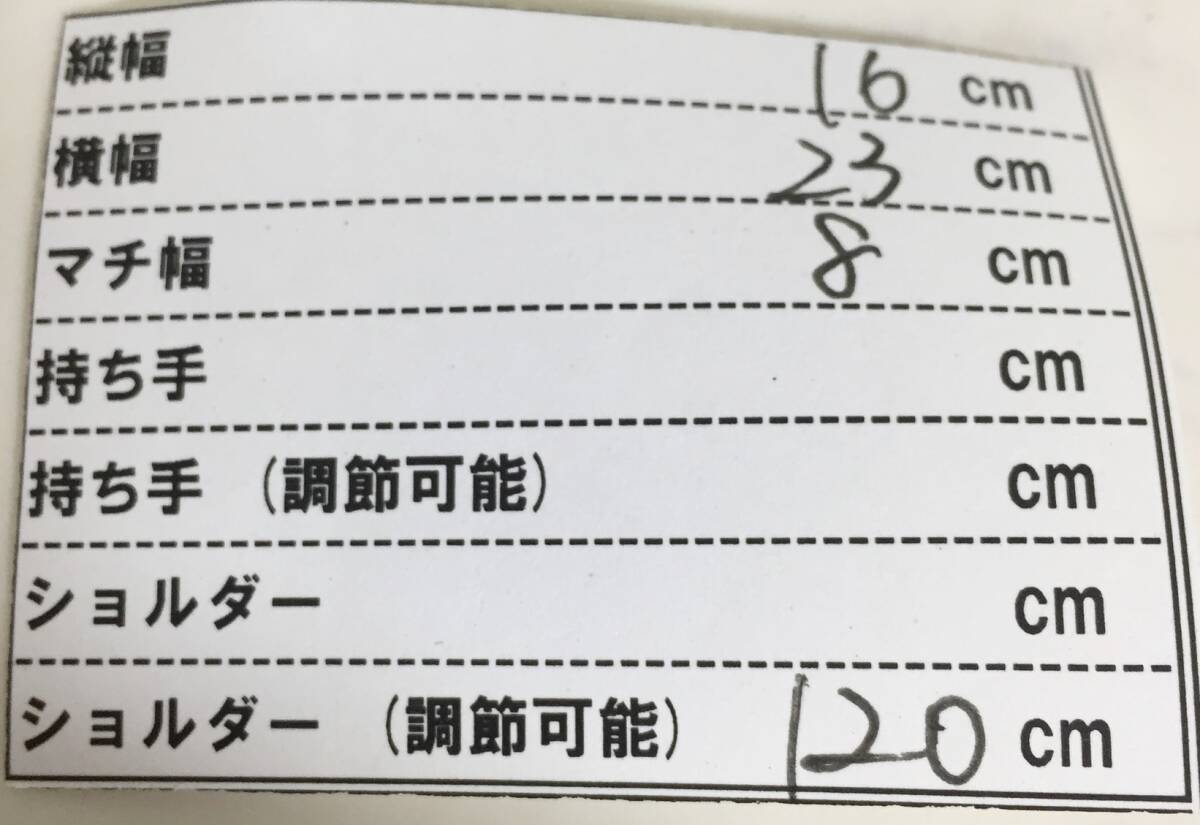 縦幅 16 cm
横幅 23 cm
マチ幅 8 cm
持ち手 cm
持ち手 (調節可能) cm
ショルダー cm
ショルダー (調節可能) 120 cm